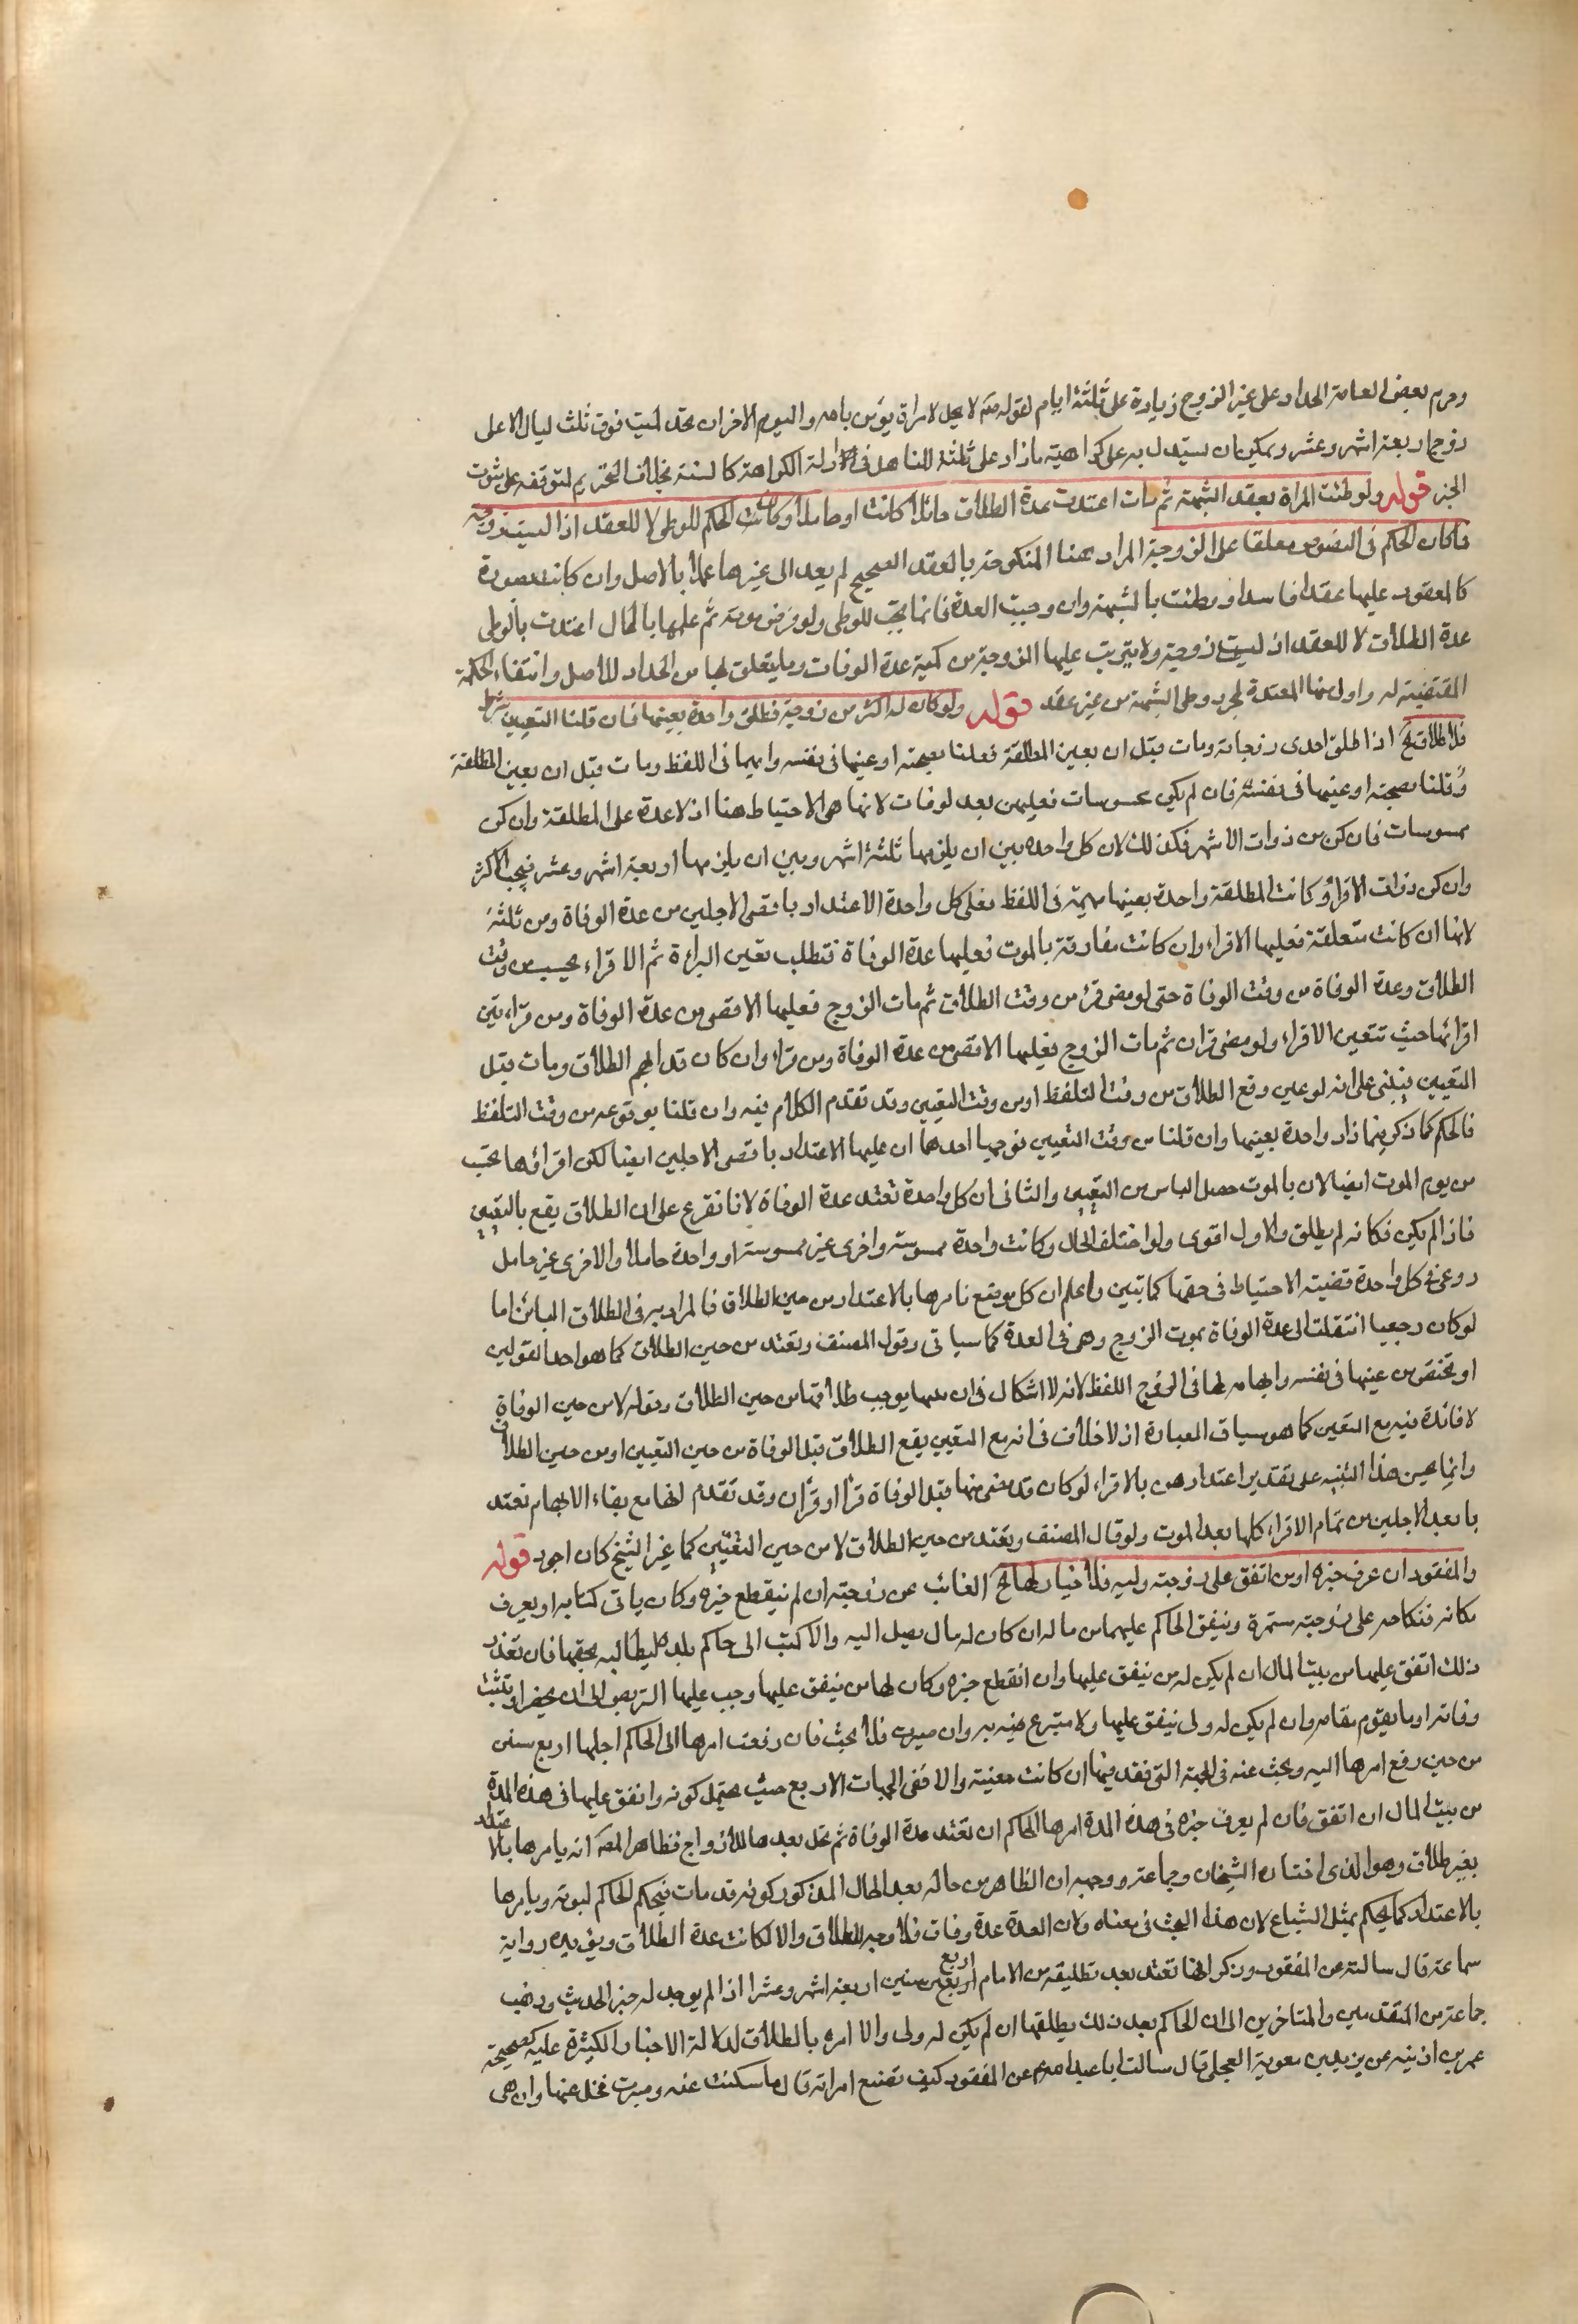 وحرم بعض العامة الحداد على غير الزوج زيادة على ثلثة ايام لقوله صم لا يحل لامراة يؤمن بالله واليوم الاخر ان تحد لميت فوق ثلث ليال الا على
زوج اربعة اشهر وعشر ويمكن ان يستدل به على كراهية ما زاد على ثلثة للتساهل في ادلة الكراهة كالسنة بخلاف التحريم لتوقفه على ثبوت
الخبر قوله ولو وطئت المراة بعقد الشبهة ثم مات اعتدت عدة الطلاق حائلا كانت او حاملا وكان الحكم للوطى لا للعقد اذ ليست زوجة
لما كان الحكم في النصوص معلقا على الزوجة المراد هنا المنكوحة بالعقد الصحيح لم يعد الى غيرها عملا بالاصل وان كانت بصورة
كالمعقود عليها عقدا فاسدا ووطئت بالشبهة وان وجبت العدة فانما يجب للوطى ولو فرض موته ثم علمها بالحال اعتدت بالوطى
عدة الطلاق لا للعقد اذ ليست زوجة ولا يترتب عليها الزوجة من كمية عدة الوفات وما يتعلق بها من الحداد للاصل وانتفاء الحكمة
المقتضية له واولى منها المعتدة لمجرد وطى الشبهة من غير عقد قوله ولو كان له اكثر من زوجة فطلق واحدة بعينها فان قلنا التعيين شرط
فلا طلاق الخ اذا طلق احدى زوجاته ومات قبل ان يعين المطلقة فعلنا بصحته او عينها في نفسه وابهما في اللفظ ومات قبل ان يعين المطلقة
وقلنا بصحته او عينها في نفسه فان لم يكن ممسوسات فعليهن بعد لوفات لانها هي الاحتياط هنا اذ لا عدة على المطلقة وان كن
ممسوسات فان كن من ذوات الاشهر فكذلك لان كل واحدة بين ان يلزمها ثلثة اشهر وبين ان يلزمها اربعة اشهر وعشر فيجب الاكثر
وان كن ذوات الاقراء وكانت المطلقة واحدة بعينها مبهمة في اللفظ فعلى كل واحدة الاعتداد باقصى الاجلين من عدة الوفاة ومن ثلثة
لانها ان كانت متعلقة فعليها الاقراء وان كانت مفارقة بالموت فعليها عدة الوفاة فتطلب تعين البراءة ثم الاقراء يحسب من وقت
الطلاق وعدة الوفاة من وقت الوفاة حتى لو مضى قرء من وقت الطلاق ثم مات الزوج فعليها الاقصى من عدة الوفاة ومن قراءين
اقرائها حيث تتعين الاقراء ولو مضى قران ثم مات الزوج فعليها الاقصى من عدة الوفاة ومن قراء وان كان قد ابهم الطلاق ومات قبل
التعيين فيبنى على انه لو عين وقع الطلاق من وقت التلفظ او من وقت التعيين وقد تقدم الكلام فيه وان قلنا بوقوعه من وقت التلفظ
فالحكم كما ذكر فيما زاد واحدة بعينها وان قلنا من وقت التعيين فوجها احدهما ان عليها الاعتداد باقصى الاجلين ايضا لكن اقراؤها تحتسب
من يوم الموت ايضا لان بالموت حصل الياس من التعيين والثاني ان كل واحدة تعتد عدة الوفاة لانا نفرع على ان الطلاق يقع بالتعيين
فاذا لم يكن فكانه لم يطلق والاول اقوى ولو اختلف الحال وكانت واحدة ممسوسة واخرى غير ممسوسة او واحدة حاملا والاخرى غير حامل
روعي في كل واحدة قضية الاحتياط في حقها كما تبين واعلم ان كل موضع نامرها بالاعتداد من حين الطلاق فالمراد به في الطلاق البائن اما
لو كان رجعيا انتقلت الى عدة الوفاة بموت الزوج وهي في العدة كما سياتي وقول المصنف وتعتد من حين الطلاق كما هو احد القولين
او تختص من عينها في نفسه وابهامه لها في اللفظ لانه لا اشكال في ان يوجب طلاقها من حين الطلاق وقوله لا من حين الوفاة
لا فائدة فيه مع التعين كما هو سياق العبارة اذ لا خلاف في انه مع التعيين يقع الطلاق قبل الوفاة من حين التعيين او من حين الطلاق
وانما يحسن هذا التنبيه على تقدير اعتدادهن بالاقراء لو كان قد مضى منها قبل الوفاة قرا او قران وقد تقدم انها مع بقاء الابهام تعتد
بابعد الاجلين من تمام الاقراء كلها بعد الموت ولو قال المصنف وتعتد من حين الطلاق لا من حين التعيين كما غير الشيخ كان اجود قوله
والمفقود ان عرف خبره او من انفق على زوجته وليه فلا خيار لها الخ الغائب عن زوجته ان لم ينقطع خبره وكان ياتي كتابه او يعرف
مكانه فنكاحه على زوجته مستمرة وينفق الحاكم عليهما من ماله ان كان له مال يصل اليه والا كتب الى حاكم بلده ليطالبه بحقها فان تعذر
ذلك انفق عليها من بيت المال ان لم يكن له من ينفق عليها وان انقطع خبره وكان لها من ينفق عليها وجب عليها التربص الى ان يحضر او يثبت
وفاته او ما يقوم مقامه وان لم يكن له ولى ينفق عليها ولا متبرع فيه به وان صبرت فلا بحث فان رفعت امرها الى الحاكم اجلها اربع سنين
من حين رفع امرها اليه وبحث عنه في الجهة التي فقد فيها ان كانت معينة والا ففي الجهات الاربع حيث يحتمل كونه وانفق عليها في هذه المدة
من بيت المال ان اتفق فان لم يعرف خبره في هذه المدة امرها الحاكم ان تعتد عدة الوفاة ثم تحل بعدها للازواج فظاهر المصه انه يامرها بالاعتداد
بغير طلاق وهو الذى اختاره الشيخان وجماعة ووجهه ان الظاهر من حاله بعد الحال المذكور كونه قد مات فيحكم الحاكم لموته ويامرها
بالاعتداد كما يحكم بمثل الشياع لان هذا البحث في معناه ولان العدة عدة وفات فلا وجه للطلاق والا لكانت عدة الطلاق ويؤيده رواية
سماعة قال سالته عن المفقود وذكر انها تعتد بعد تطليقه من الامام اربع سنين اربعة اشهر وعشرا اذا لم يوجد له خبر الحديث وذهب
جماعة من المتقدمين والمتاخرين الى ان الحاكم بعد ذلك يطلقها ان لم يكن له ولى والا امره بالطلاق لدلالة الاخبار الكثيرة عليه كصحيحة
عمر بن اذينه عن يزيد بن معوية العجلي قال سالت ابا عبد الله ع عن المفقود كيف تصنع امراته قال ما سكتت عنه وصبرت فخل عنها وان هى